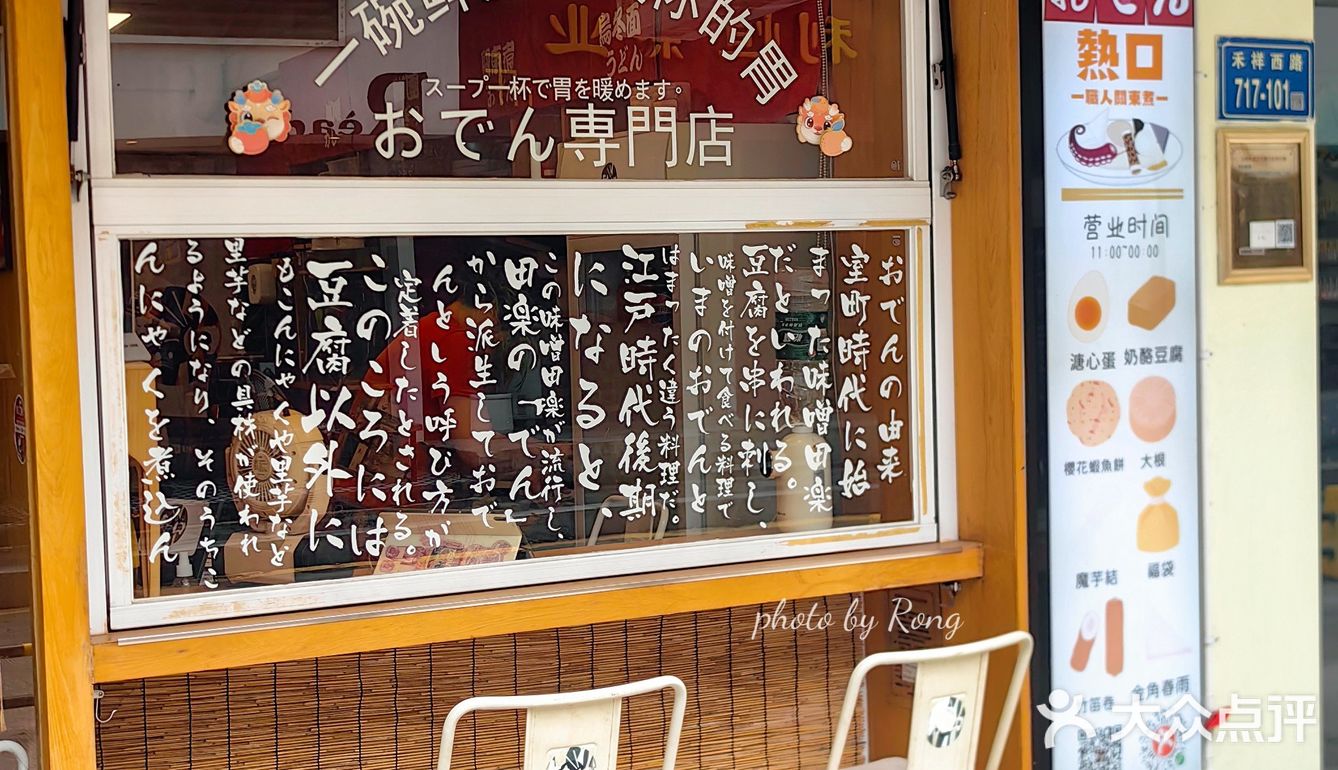 一碗鮮
你的胃
烏冬面
うどん
スープ一杯で胃を暖めます。
おでん専門店
おでんの由来
室町時代に始
まった味噌田楽
だといわれる。
豆腐を串に刺し、
味噌を付けて食べる料理で
いまのおでんと
はまったく違う料理だ。
江戸時代後期
になると、
この味噌田楽が流行し、
田楽の「でん」
から派生しておで
んという呼び方が
定着したとされる。
このころには
豆腐以外に
もこんにゃくや里芋など
里芋などの具材が使われ
るようになり、そのうちこ
んにゃくを煮込ん
おでん
熱口
一職人關東煮一
营业时间
11:00~00:00
溏心蛋
奶酪豆腐
櫻花蝦魚餅
大根
魔芋結
福袋
竹笛卷
金角春雨
禾祥西路
717-101
photo by Rong
大众点评